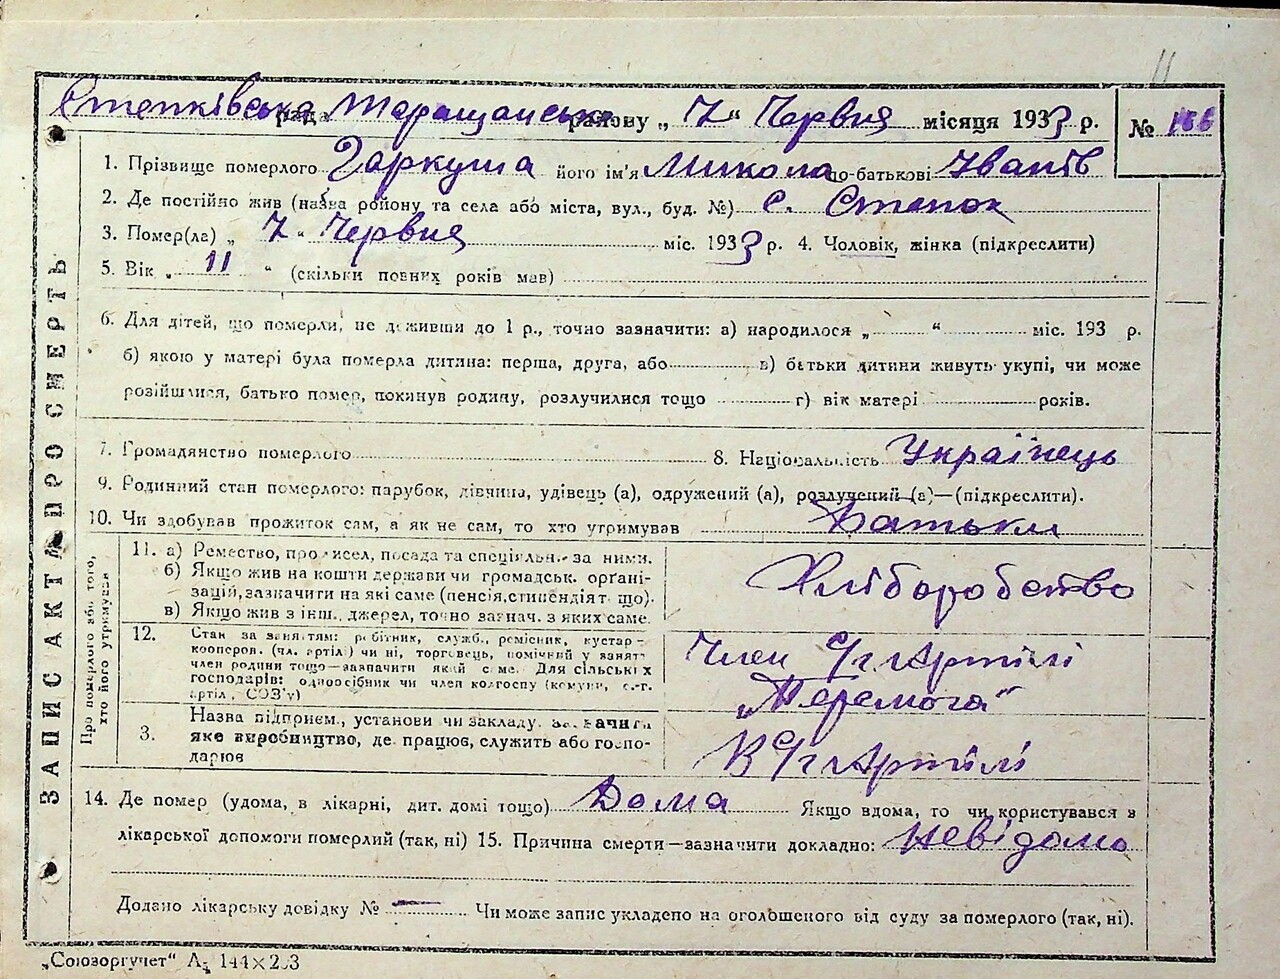 11
Степківська рада Таращанського району „ 7 “ Червня місяця 1933 р. № 166
1. Прізвище померлого Гаркуша його ім'я Микола по-батькові Іванів
2. Де постійно жив (назва району та села або міста, вул., буд. №) с. Степок
3. Помер(ла) „ 7 “ Червня міс. 1933 р. 4. Чоловік, жінка (підкреслити)
5. Вік „ 11 “ (скільки повних років мав)
6. Для дітей, що померли, не доживши до 1 р., точно зазначити: а) народилося „ “ міс. 193 р.
б) якою у матері була померла дитина: перша, друга, або в) батьки дитини живуть укупі, чи може
розійшлися, батько помер, покинув родину, розлучилися тощо г) вік матері років.
7. Громадянство померлого 8. Національність Українець
9. Родинний стан померлого: парубок, дівчина, удівець (а), одружений (а), розлучений (а)—(підкреслити).
10. Чи здобував прожиток сам, а як не сам, то хто утримував Батьки
11. а) Ремество, промисел, посада та спеціяльн. за ними.
б) Якщо жив на кошти держави чи громадськ. орґані-
зацій, зазначити на які саме (пенсія, стипендіят що).
в) Якщо жив з інш. джерел, точно зазнач. з яких саме.
Хліборобство
12. Стан за заняттям: робітник, служб., ремісник, кустар-
кооперов. (чл. артілі) чи ні, торговець, помічний у занятт
член родини тощо—зазначити який саме. Для сільських
господарів: одноосібник чи член колгоспу (комуни, с.-г.
артіл, СОЗ'у)
Член С/г Артілі
„Перемога“
3. Назва підприєм., установи чи закладу. зазначити
яке виробництво, де працює, служить або госпо-
дарює
В С/г Артілі
14. Де помер (удома, в лікарні, дит. домі тощо) Дома Якщо вдома, то чи користувався з
лікарської допомоги померлий (так, ні) 15. Причина смерти—зазначити докладно: Невідомо
Додано лікарську довідку № — Чи може запис укладено на оголошеного від суду за померлого (так, ні).
„Союзоргучет“ А
ЗАПИС АКТА ПРО СМЕРТЬ
Про померлого або того,
хто його утримував